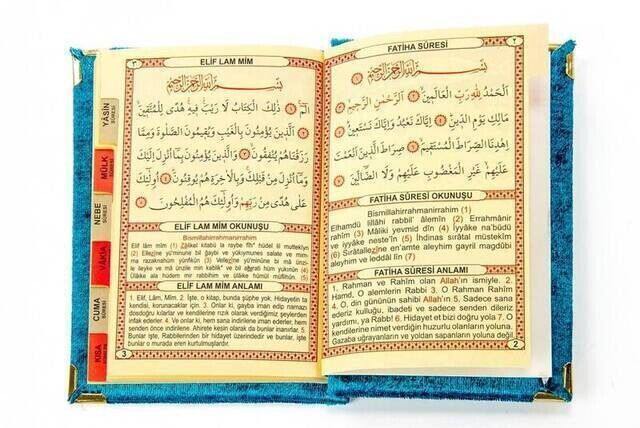 FATİHA SÛRESİ
٢
بِسْمِ اللّٰهِ الرَّحْمٰنِ الرَّحِيمِ
اَلْحَمْدُ لِلّٰهِ رَبِّ الْعَالَمِينَ اَلرَّحْمٰنِ الرَّحِيمِ
مَالِكِ يَوْمِ الدِّينِ اِيَّاكَ نَعْبُدُ وَاِيَّاكَ نَسْتَعِينُ
اِهْدِنَا الصِّرَاطَ الْمُسْتَقِيمَ صِرَاطَ الَّذِينَ اَنْعَمْتَ
عَلَيْهِمْ غَيْرِ الْمَغْضُوبِ عَلَيْهِمْ وَلَا الضَّالِّينَ
FATİHA SÛRESİ OKUNUŞU
Bismillahirrahmanirrahim (1)
Elhamdü lillâhi rabbil' âlemîn (2) Errahmânir
rahîm (3) Mâliki yevmid dîn (4) İyyâke na'büdü
ve iyyâke neste'în (5) İhdinas sırâtal müstekîm
(6) Sırâtallezîne en'amte aleyhim gayril mağdûbi
aleyhim ve leddâl lîn (7)
FATİHA SÛRESİ ANLAMI
1. Rahman ve Rahim olan Allah'ın ismiyle. 2.
Hamd, O alemlerin Rabbi 3. O Rahman Rahim
4. O, din gününün sahibi Allah'ın 5. Sadece sana
ederiz kulluğu, ibadeti ve sadece senden dileriz
yardımı, ya Rabb! 6. Hidayet et bizi doğru yola 7. O
kendilerine nimet verdiğin huzurlu olanların yoluna.
Gazaba uğrayanların ve yoldan sapanların yoluna değil.
2
ELİF LAM MİM
٣
بِسْمِ اللّٰهِ الرَّحْمٰنِ الرَّحِيمِ
الٓمٓ ذٰلِكَ الْكِتَابُ لَا رَيْبَ فِيهِ هُدًى لِلْمُتَّقِينَ
اَلَّذِينَ يُؤْمِنُونَ بِالْغَيْبِ وَيُقِيمُونَ الصَّلٰوةَ وَمِمَّا
رَزَقْنَاهُمْ يُنْفِقُونَ وَالَّذِينَ يُؤْمِنُونَ بِمَا اُنْزِلَ اِلَيْكَ
وَمَا اُنْزِلَ مِنْ قَبْلِكَ وَبِالْاٰخِرَةِ هُمْ يُوقِنُونَ اُولٰئِكَ
عَلٰى هُدًى مِنْ رَبِّهِمْ وَاُولٰئِكَ هُمُ الْمُفْلِحُونَ
ELİF LAM MİM OKUNUŞU
Bismillahirrahmanirrahim
Elif lâm mîm (1) Zâlikel kitâbü la raybe fîh* hüdel lil müttekîyn
(2) Ellezîne yü'minune bil ğaybi ve yükıymunes salate ve mim-
ma razaknahüm yünfikûn (3) Vellezîne yü'minune bi mâ ünzi-
le ileyke ve mâ ünzile min kablik* ve bil ahırati hüm yukınûn (4)
Ülâike ala hüdem mir rabbihim ve ülâike hümül müflihun (5)
ELİF LAM MİM ANLAMI
1. Elif, Lâm, Mîm. 2. İşte, o kitap, bunda şüphe yok, Hidayetin ta
kendisi, korunacaklar için. 3. Onlar ki, gayba iman edip namazı
dosdoğru kılarlar ve kendilerine rızık olarak verdiğimiz şeylerden
infak ederler. 4. Ve onlar ki, hem sana indirilene iman ederler, hem
senden önce indirilene. Ahirete kesin olarak da bunlar inanırlar. 5.
Bunlar işte, Rabbilerinden bir hidayet üzerindedir ve bunlar, işte
bunlar o murada eren kurtulmuşlardır.
3
YÂSİN
SÛRESİ
MÜLK
SÛRESİ
NEBE
SÛRESİ
VAKIA
CUMA
SÛRESİ
KISA